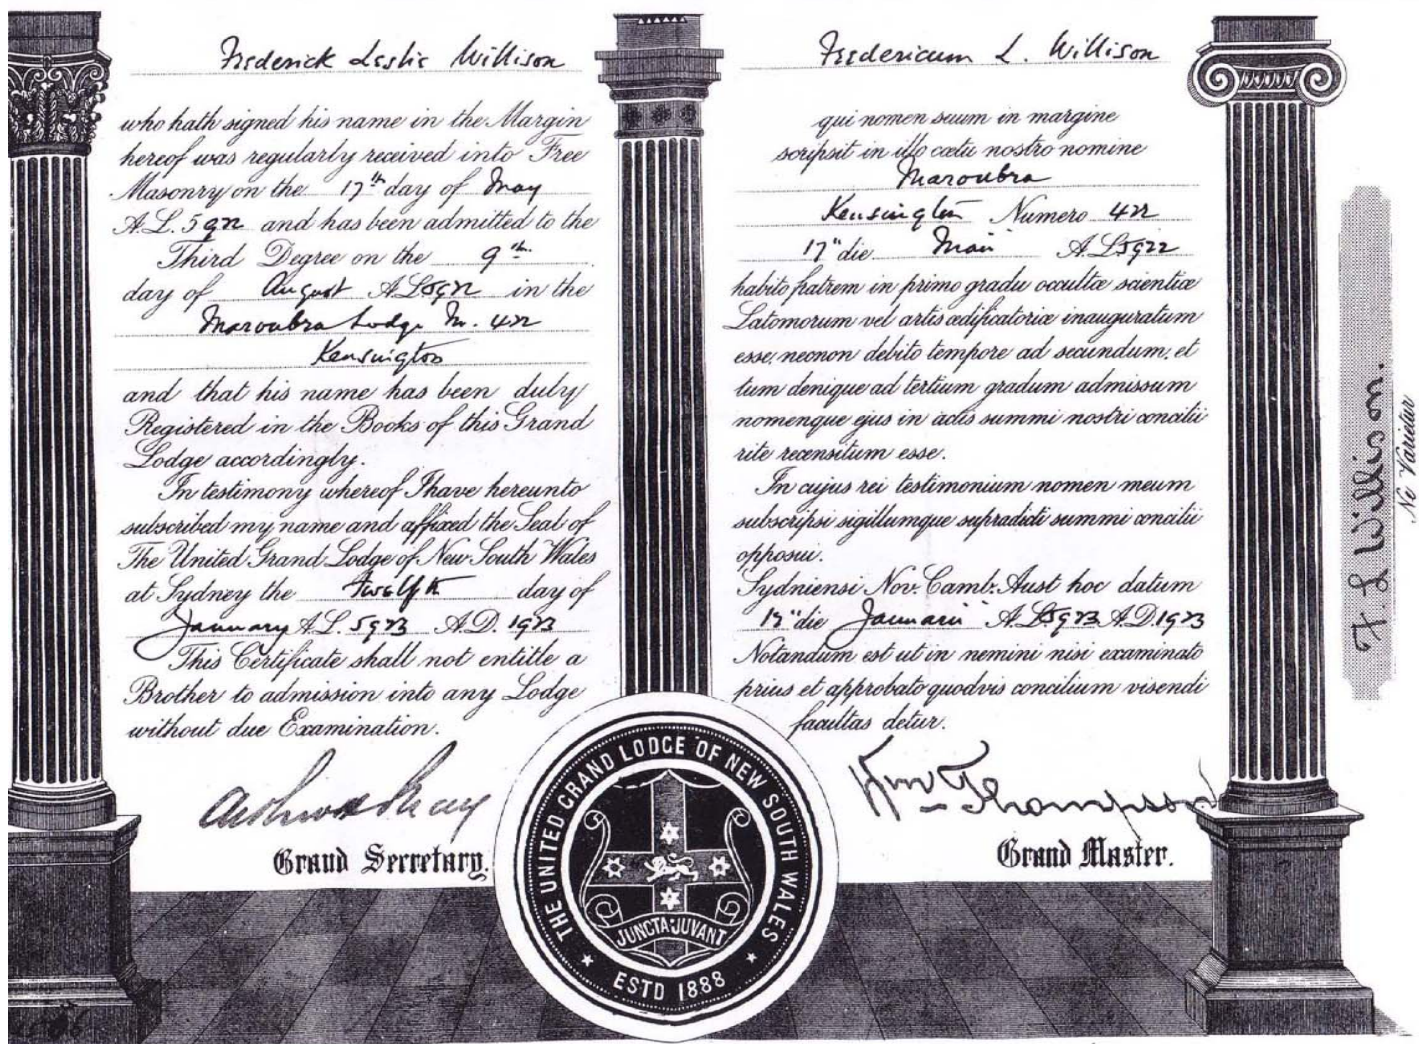 Frederick Leslie Willison
who hath signed his name in the Margin
hereof was regularly received into Free
Masonry on the 17th day of May
A.L. 5922 and has been admitted to the
Third Degree on the 9th
day of August A.L. 5922 in the
Maroubra Lodge No. 422
Kensington
and that his name has been duly
Registered in the Books of this Grand
Lodge accordingly.
In testimony whereof I have hereunto
subscribed my name and affixed the Seal of
The United Grand Lodge of New South Wales
at Sydney the Twelfth day of
January A.L. 5923 A.D. 1923
This Certificate shall not entitle a
Brother to admission into any Lodge
without due Examination.
Grand Secretary.
Fredericum L. Willison
qui nomen suum in margine
scripsit in illo cœtu nostro nomine
Maroubra
Kensington Numero 422
17" die Maii A.L. 5922
habito fratrem in primo gradu occultæ scientiæ
Latomorum vel artis ædificatoriæ inauguratum
esse, necnon debito tempore ad secundum, et
tum denique ad tertium gradum admissum
nomenque ejus in actis summi nostri concilii
rite recensitum esse.
In cujus rei testimonium nomen meum
subscripsi sigillumque supradicti summi concilii
opposui.
Sydniensi Nov. Camb. Aust hoc datum
12" die Januarii A.L. 5923 A.D. 1923
Notandum est ut in nemini nisi examinato
prius et approbato quodvis concilium visendi
facultas detur.
Wm Thompson
Grand Master.
F. L Willison.
Ne Varietur
THE UNITED GRAND LODGE OF NEW SOUTH WALES
JUNCTA JUVANT
ESTD 1888